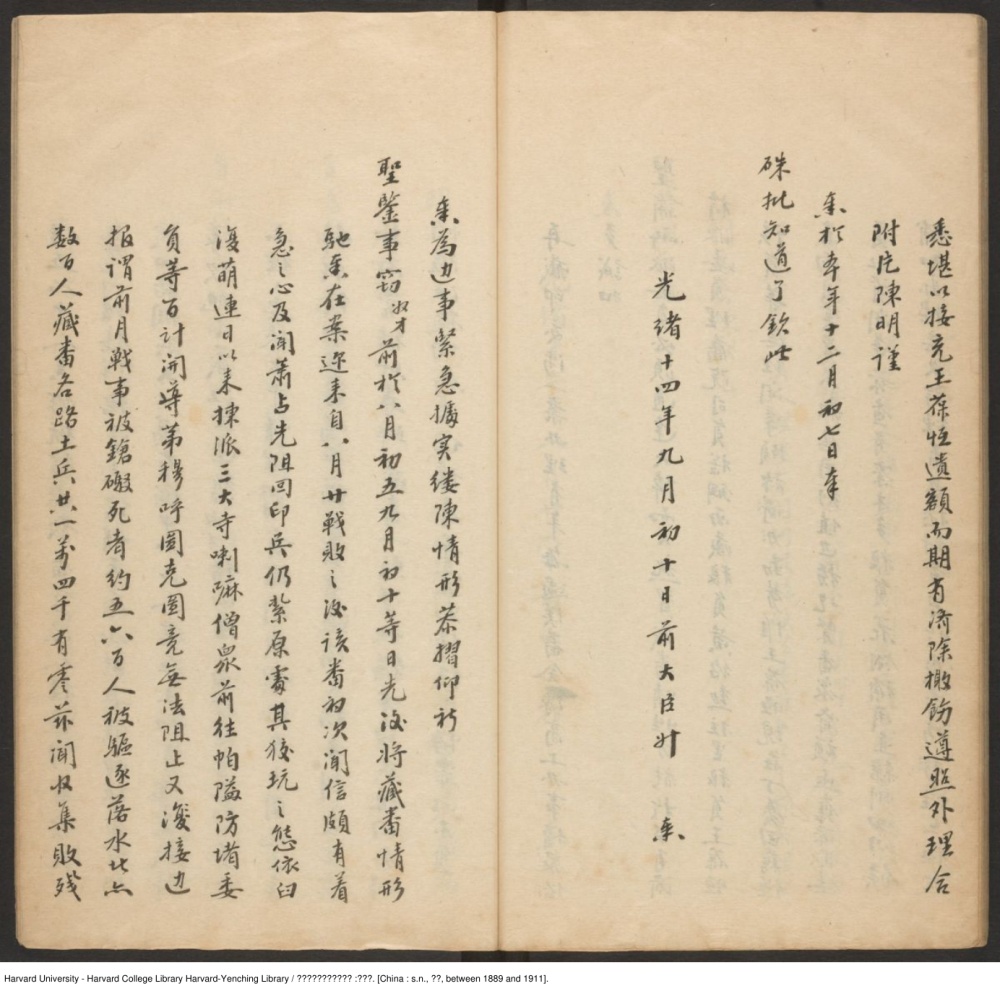 悉堪以接充王葆恒遺額而期有濟除檄飭遵照外理合
附片陳明謹
奏於本年十二月初七日奉
硃批知道了欽此
光緒十四年九月初十日前大臣升 奏
奏為边事緊急據实缕陳情形恭摺仰祈
聖鑒事窃奴才前於八月初五九月初十等日先後將藏番情形
馳奏在案迩来自八月廿戰敗之後该番初次闻信頗有着
急之心及闻萧占先阻回印兵仍紮原處其狡玩之態依旧
復萌連日以来揀派三大寺喇嘛僧眾前往帕隘防堵委
負等百计開導第穆呼圖克圖竟無法阻止又復接边
报谓前月戰事被鎗礮死者约五六百人被驅逐落水
数百人藏番各路土兵共一萬四千有零茲闻收集敗残
Harvard University - Harvard College Library Harvard-Yenching Library / ??????????? :???. [China : s.n., ??, between 1889 and 1911].